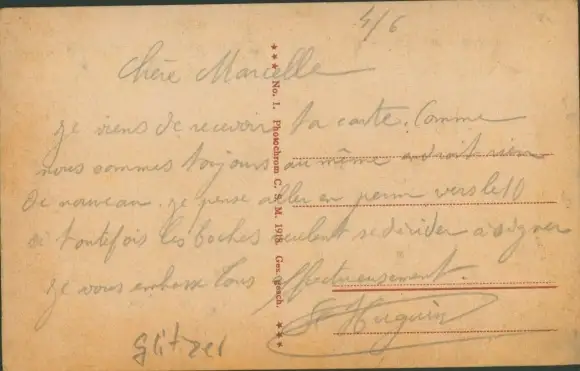 4/6
Chère Marcelle
Je viens de recevoir ta carte. Comme
nous sommes toujours au même endroit rien
de nouveau. Je pense aller en perm vers le 10
si toutefois les boches veulent se décider à signer
Je vous embrasse tous affectueusement.
Huguin
glitzer
★★★ No. 1. Photochrom C. S. M. 1918. Ges. gesch. ★★★